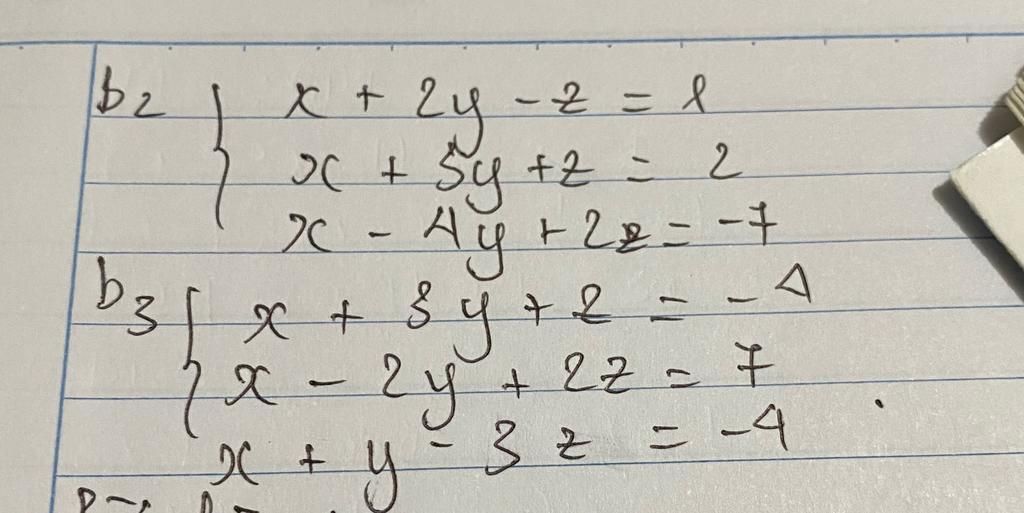 b2 { x + 2y - z = 8
x + 3y + z = 2
x - 4y + 2z = -7
b3 { x + 3y + z = -4
x - 2y + 2z = 7
x + y - 3z = -4